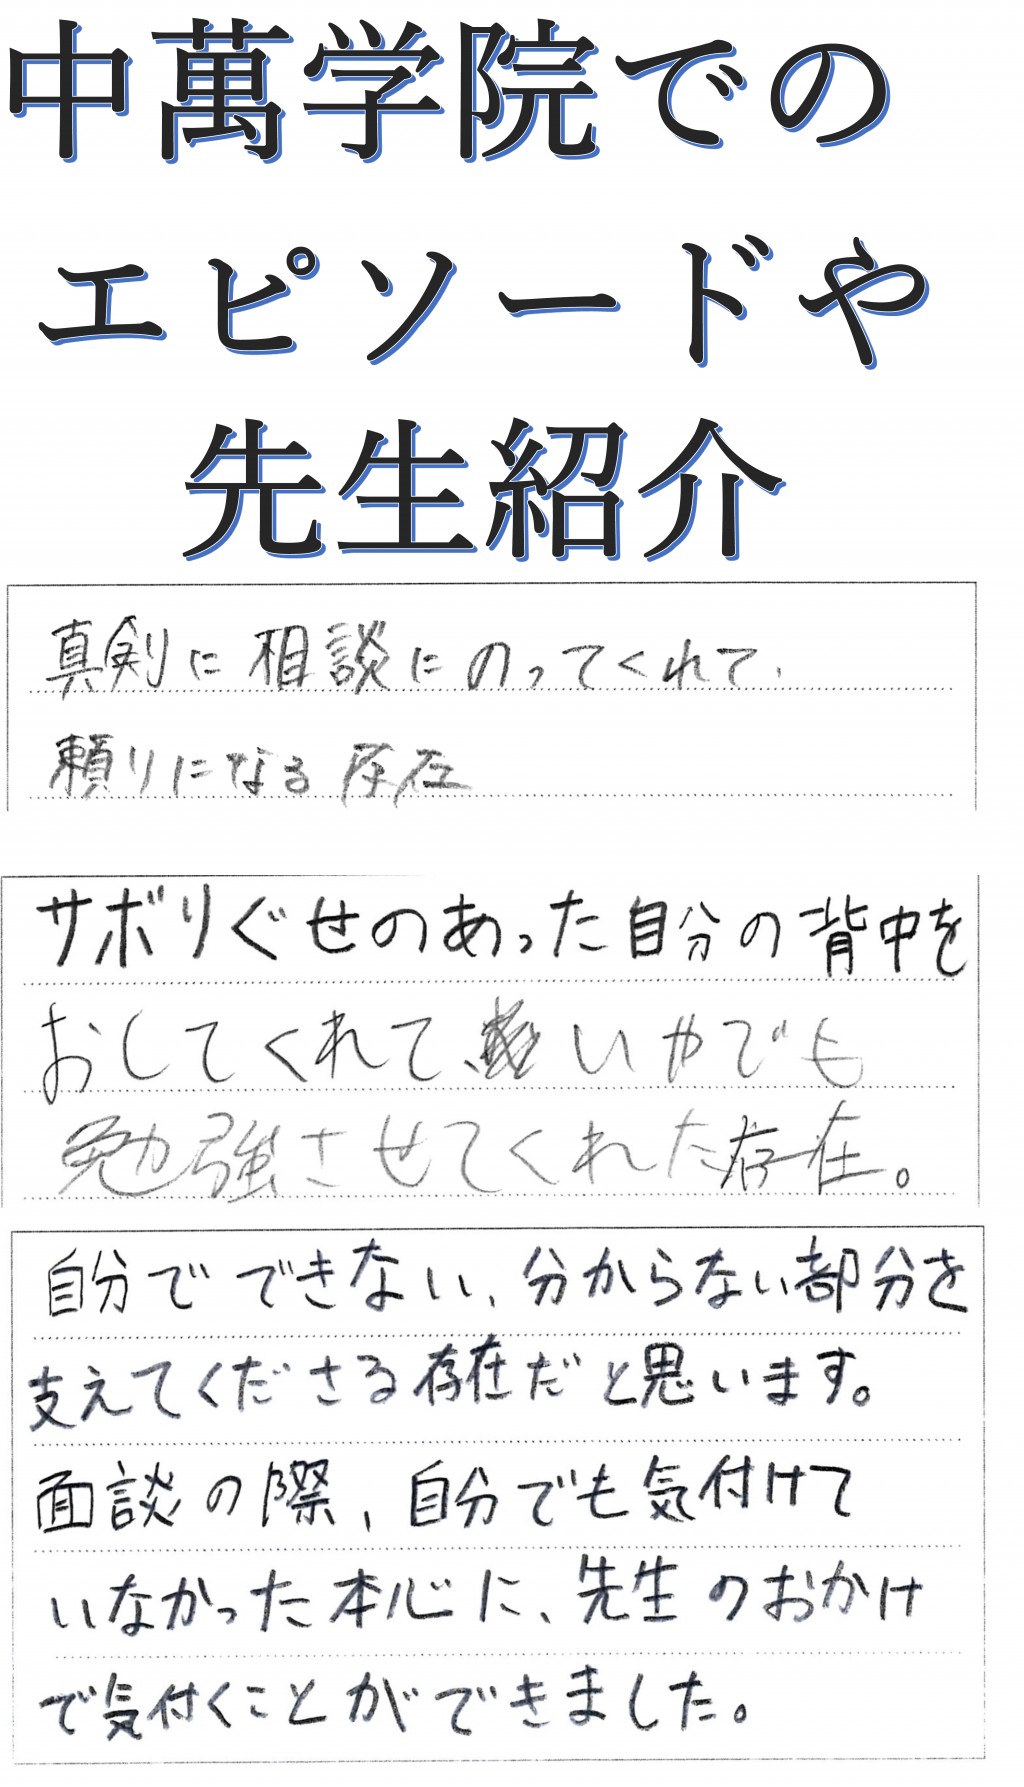 中萬学院での
エピソードや
先生紹介
真剣に相談にのってくれて、
頼りになる存在
サボりぐせのあった自分の背中を
おしてくれて、いやでも
勉強させてくれた存在。
自分でできない、分からない部分を
支えてくださる存在だと思います。
面談の際、自分でも気付けて
いなかった本心に、先生のおかけ
で気付くことができました。